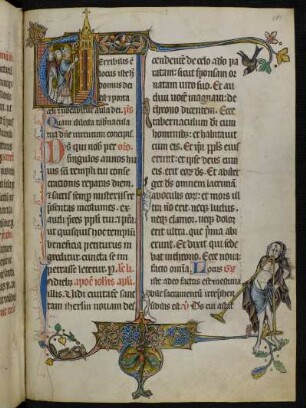 Erribilis ẽ
locus iste h̃
domus dei
est ⁊ porta
celi ⁊ uocabitur aula dei. p̃s
Quam dilecta tabnacula
tua dñe uirtutum concupis.
Ds qui nos per
singulos annos hu
ius sancti templi tui conse
crationis reparas diem.
⁊ sacris semp misteriis re
p̃sentas incolumes. ex
audi p̃ces ppl̃i tui. ⁊ p̃sta
ut quisquis hoc templũ
beneficia petiturus in
greditur. cuncta se im
petrasse letetur. p̃.
sis. Uidi ciuitatẽ sanc
tam iherlm nouam des
cendente de celo a deo pa
ratam. sicut sponsam or
natam uiro suo. Et au
diui uocẽ magnam de
throno dicentem. Ecce
tabernaculum dei cum
hominib;. ⁊ habitabit
cum eis. Et ipi ppl̃s eius
erunt. ⁊ ipse deus cum
eis erit eor̃ ds. Et abster
get ds omnem lacrimã
ab oculis eor̃. et mors ul
tra nõ erit. neq; luctus.
neq; clamor. neq; dolor
erit ultra. que prima abi
erunt. Et dixit qui sede
bat in throno. Ecce noua
facio omĩa. Locus
iste a deo factus est inestima
bile sacramentũ irrep̃hen
sibilis est. Ds cui astat